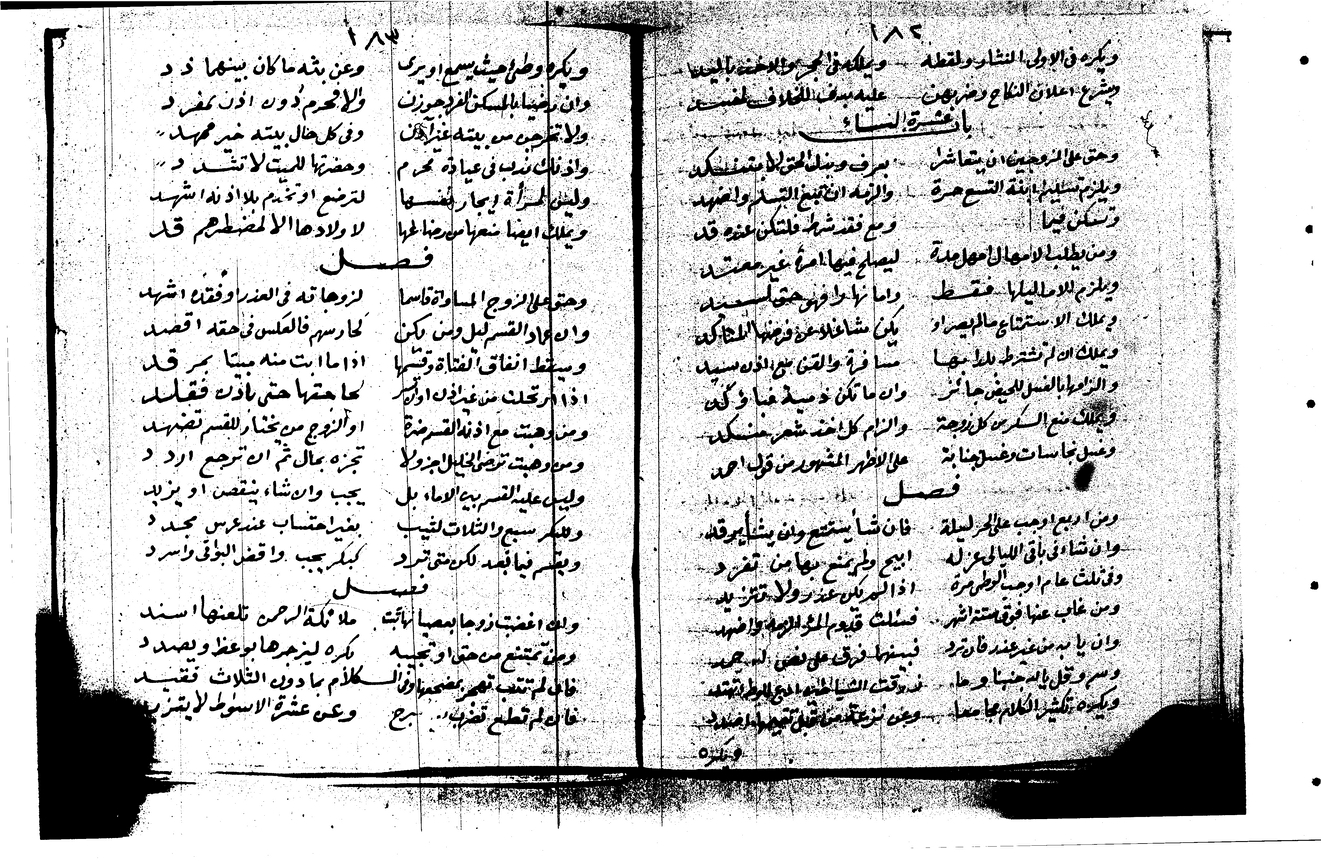 ١٨٢
ويكره في الاولى النثار ولقطه ويملك في الحجر
ويشرع اعلان النكاح وضربهن عليه بدف
باب عشرة النساء
وحق على الزوجين ان يتعاشرا بعرف وبذل الحق لا
ويلزم تسليم ابنة التسع حرة والزمه ان تمنع التسلم واضهد
وتسكن فيها ومع فقد شرط فلتكن عنده قد
ومن يطلب الامهال امهل مدة ليصلح فيها امره غير معتد
ويلزم للاما ليلها فقط واما نهارا فهي حق لسيد
ويملك الاستمتاع مالم يصر او يكن شاغلا عن فرضها
ويملك ان لم تشترط
والزامها بالغسل للحيض جائز وان ما تكن ذمية
ويملك منع السكر من كل زوجة والزام كل اخذ شعر
وغسل نجاسات وغسل جنابة على الاظهر المشهور من قول احمد
فصل
ومن اربع اوجب على الحر ليلة فان شا يستمتع وان يشا يرقد
وان شاء في باقي الليالي عزله ابيح ولم يمنع بها من تفرد
وفي ثلث عام اوجب الوطي مرة اذا لم يكن عذر ولا تتزيد
ومن غاب عنها فوق ستة اشهر فسئلت قدوم المرء الزمه واضهد
وان ياب من غير عذر فان ترد فبينهما فرق على نص احمد
وسم وقل يا رب جنبنا وما
ويكره تكثير الكلام مجامعا وعن نزعه من قبل
ويكره
١٨٣
ويكره وطي حيث يسمع او يرى وعن بثه ما كان بينهما ذد
وان رضيا بالمسكن الفرد جوزن والا فحرم دون اذن بمفرد
ولا تخرجن من بيته غير آذن وفي كل حال بيته خير مقصد
واذنك ندب في عيادة محرم وحضرتها للميت لا تتشدد
وليس لمرأة ايجار نفسها لترضع او تخدم بلا اذنه اشهد
ويملك ايضا منعها من رضاعها لاولادها الا لمضطرهم قد
فصل
وحق على الزوج المساواة قاسما لزوجاته في العذر او فقده اشهد
وان عماد القسم ليل ومن يكن كحارسهم فالعكس في حقه اقصد
ويسقط انفاق الفتاة وقسمها اذا ما ابت منه مبيتا بمرقد
اذا ارتحلت من غير اذن او لحاجتها حتى باذن فقلد
ومن وهبت مع اذنه القسم ضرة او الزوج من يختار للقسم تضهد
ومن وهبت ترضي الخليل اجز ولا تجزه بمال ثم ان ترجع اردد
وليس عليه القسم بين الاماء بل يجب وان شاء ينقص او يزيد
وللبكر سبع والثلاث لثيب بغير احتساب عند عرس مجدد
ويقسم فيما بعد لكن متى ترد كبكر يجب واقض البواقي واسرد
فصل
وان اغضبت زوجا بعصيانها ملائكة الرحمن تلعنها اسند
ومن تمتنع من حق او تجيبه بكره ليزجرها بوعظ ويصدد
فان لم تتب تهجر بمضجعها وفي الكلام بما دون الثلاث فقيد
فان لم تطع تضرب وعن عشرة الاسواط لا يتزيد